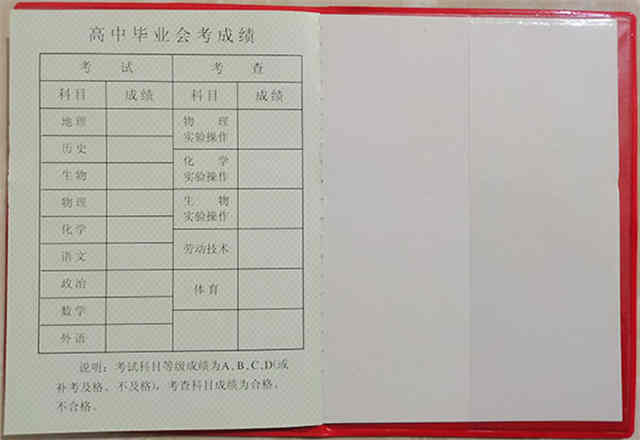 高中毕业会考成绩
考试 考查
科目 成绩 科目 成绩
地理
历史
生物
物理
化学
语文
政治
数学
外语
物理
实验操作
化学
实验操作
生物
实验操作
劳动技术
体育
说明：考试科目等级成绩为A、B、C、D(或
补考及格、不及格)，考查科目成绩为合格、
不合格。